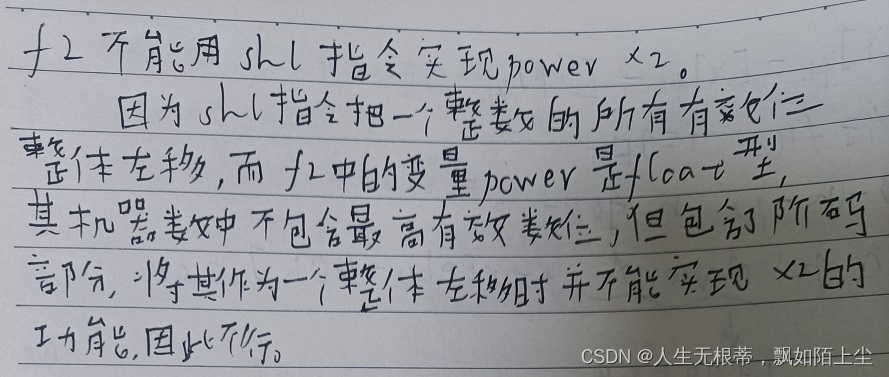 f2 不能用 shl 指令实现power ×2。
因为 shl指令把一个整数的所有有效位
整体左移,而 f2中的变量power 是float型,
其机器数中不包含最高有效数位,但包含了阶码
部分,将其作为一个整体左移时并不能实现 ×2的
功能,因此不行。
CSDN @人生无根蒂，飘如陌上尘